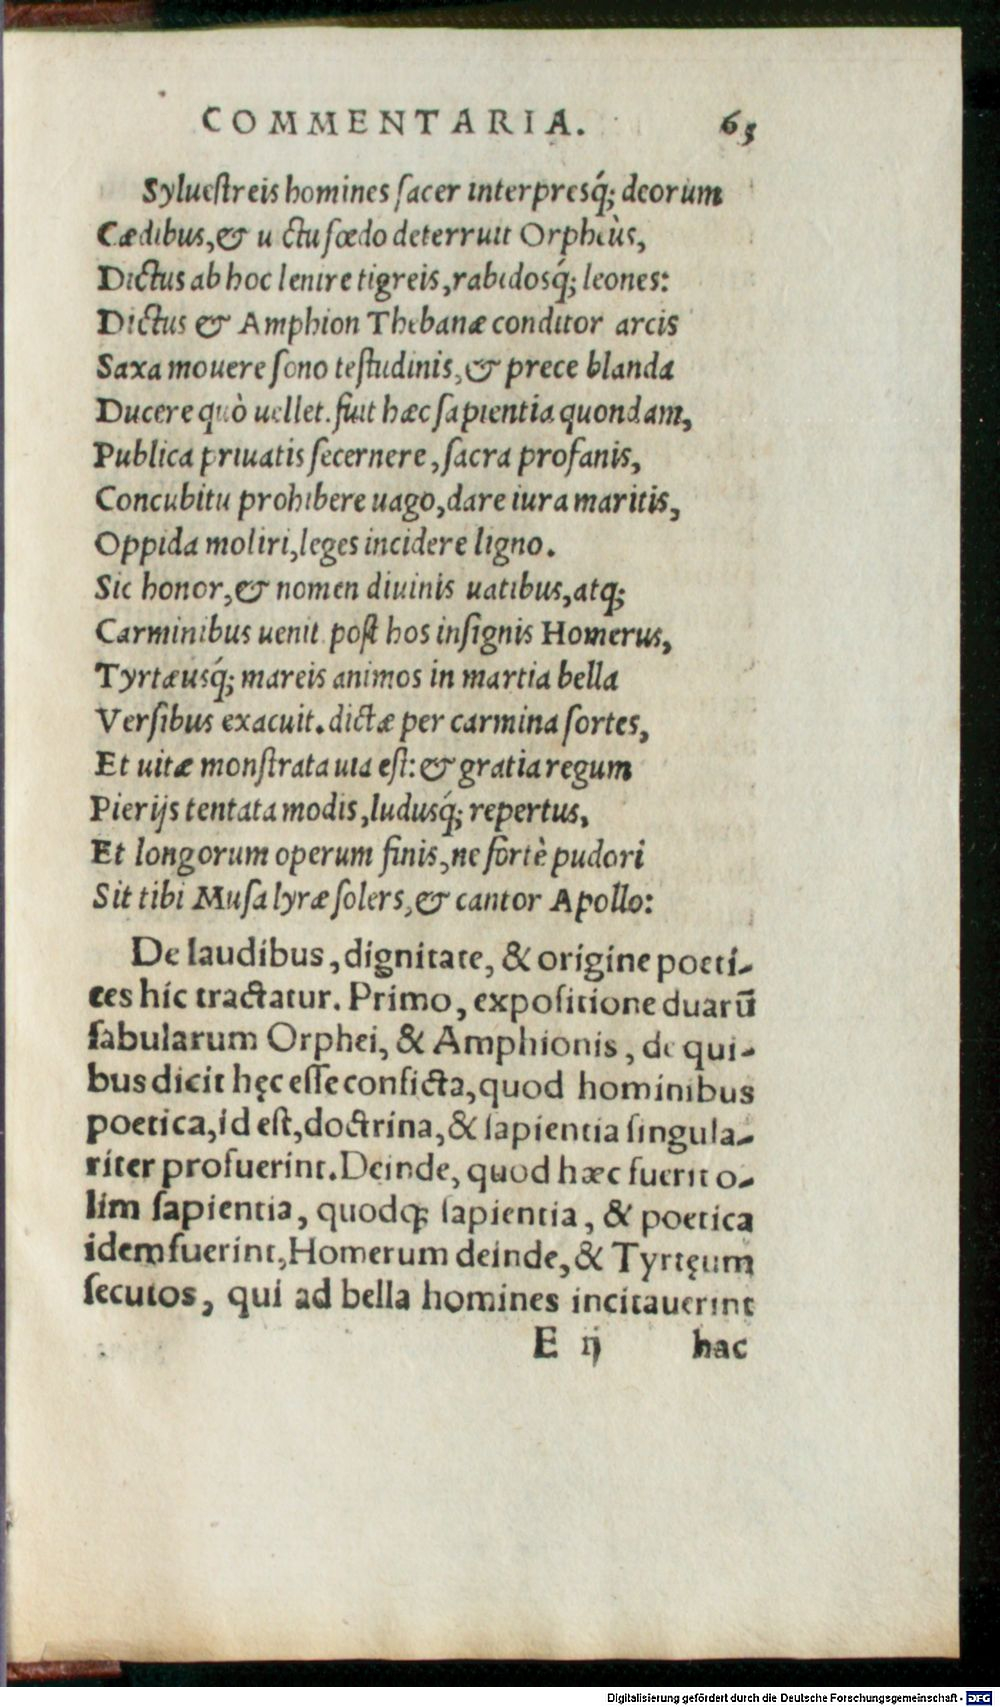 COMMENTARIA. 65
Syluestreis homines sacer interpresq́; deorum
Cædibus, & uictu fœdo deterruit Orpheùs,
Dictus ab hoc lenire tigreis, rabidosq́; leones:
Dictus & Amphion Thebanæ conditor arcis
Saxa mouere sono testudinis, & prece blanda
Ducere quò uellet. fuit hæc sapientia quondam,
Publica priuatis secernere, sacra profanis,
Concubitu prohibere uago, dare iura maritis,
Oppida moliri, leges incidere ligno.
Sic honor, & nomen diuinis uatibus, atq;
Carminibus uenit. post hos insignis Homerus,
Tyrtæusq́; mareis animos in martia bella
Versibus exacuit. dictæ per carmina sortes,
Et uitæ monstrata uia est: & gratia regum
Pierijs tentata modis, ludusq́; repertus,
Et longorum operum finis, ne fortè pudori
Sit tibi Musa lyræ solers, & cantor Apollo:
De laudibus, dignitate, & origine poeti-
ces hic tractatur. Primo, expositione duarū
fabularum Orphei, & Amphionis, de qui-
bus dicit hęc esse conficta, quod hominibus
poetica, id est, doctrina, & sapientia singula-
riter profuerint. Deinde, quod hæc fuerit o-
lim sapientia, quodq; sapientia, & poetica
idem fuerint, Homerum deinde, & Tyrtęum
secutos, qui ad bella homines incitauerint
E ij hac
Digitalisierung gefördert durch die Deutsche Forschungsgemeinschaft - DFG